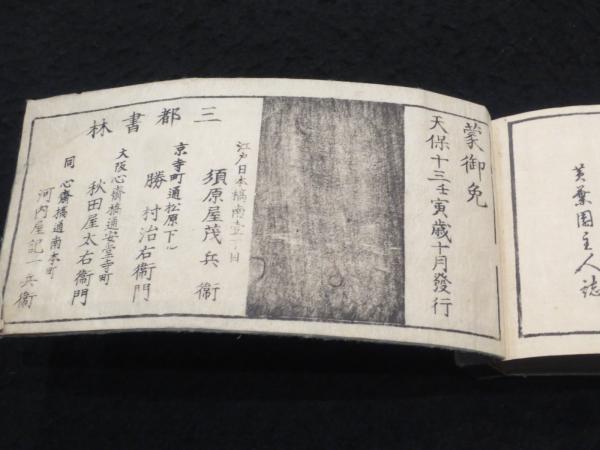 黄葉園主人誌
蒙御免
天保十三壬寅歳十月發行
三都書林
江戸日本橋南壹丁目
須原屋茂兵衞
京寺町通松原下ル
勝村治右衞門
大阪心齋橋通安堂寺町
秋田屋太右衞門
同心齋橋通南本町
河内屋記一兵衞